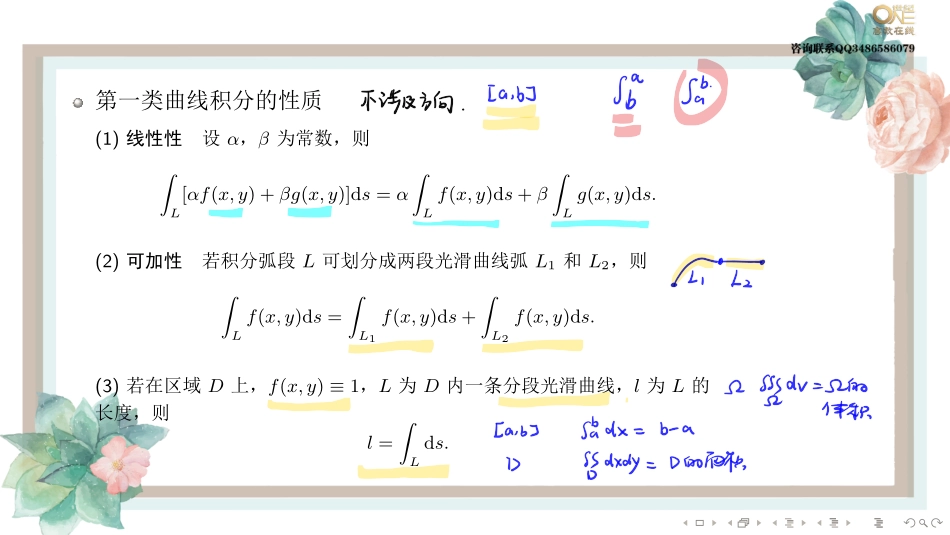 ONE
高数在线
咨询联系QQ3486586079
第一类曲线积分的性质 不涉及方向. [a,b] ∫_b^a ∫_a^b.
(1) 线性性 设 α，β 为常数，则
∫_L [αf(x, y) + βg(x, y)]ds = α ∫_L f(x, y)ds + β ∫_L g(x, y)ds.
(2) 可加性 若积分弧段 L 可划分成两段光滑曲线弧 L₁ 和 L₂，则
L₁ L₂
∫_L f(x, y)ds = ∫_{L₁} f(x, y)ds + ∫_{L₂} f(x, y)ds.
(3) 若在区域 D 上，f(x, y) ≡ 1，L 为 D 内一条分段光滑曲线，l 为 L 的
长度，则
Ω ∭_Ω dv = Ω的
体积
l = ∫_L ds.
[a,b] ∫_a^b dx = b-a
D ∬_D dxdy = D的面积.